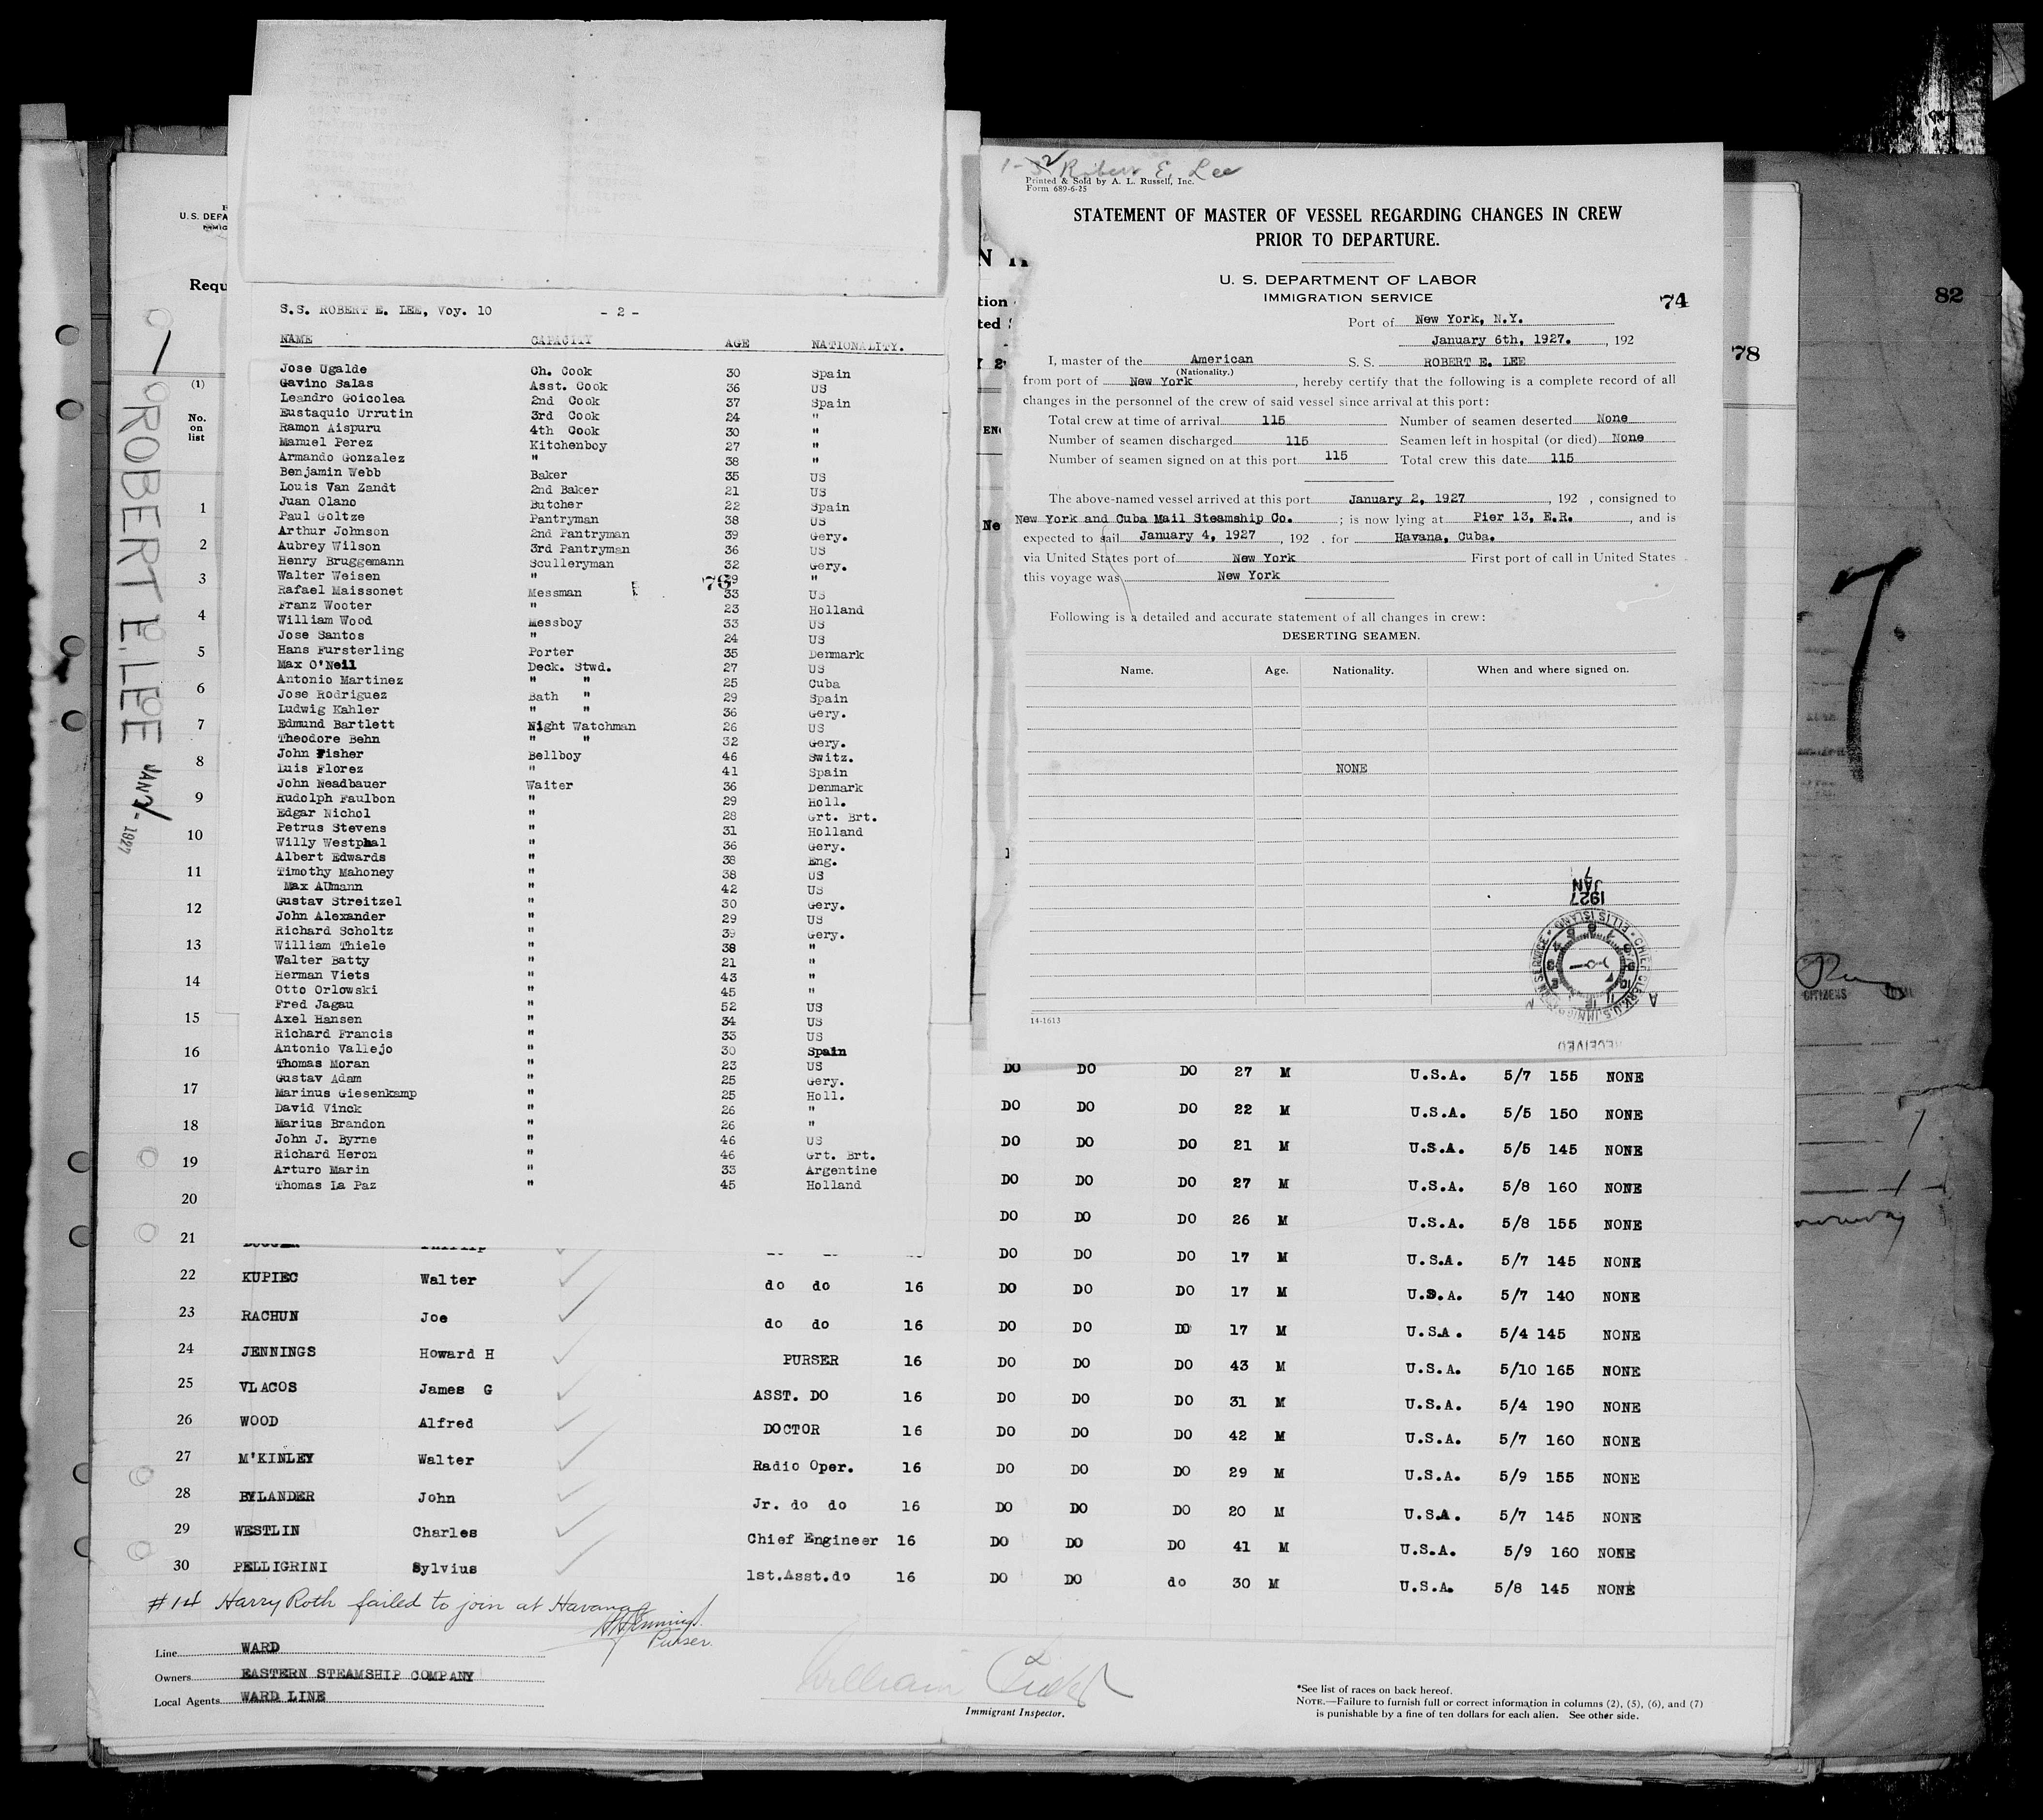 U. S. DEPA
IMMIG
Requ
(1)
No.
on
list
ROBERT E. LEE JAN 2 - 1927
S.S. ROBERT E. LEE, Voy. 10 - 2 -
NAME CAPACITY AGE NATIONALITY.
Jose Ugalde Ch. Cook 30 Spain
Gavino Salas Asst. Cook 36 US
Leandro Goicolea 2nd Cook 37 Spain
Eustaquio Urrutin 3rd Cook 24 "
Ramon Aispuru 4th Cook 30 "
Manuel Perez Kitchenboy 27 "
Armando Gonzalez " 38 "
Benjamin Webb Baker 35 US
Louis Van Zandt 2nd Baker 21 US
Juan Olano Butcher 22 Spain
Paul Goltze Pantryman 38 US
Arthur Johnson 2nd Pantryman 39 Gery.
Aubrey Wilson 3rd Pantryman 36 US
Henry Bruggemann Sculleryman 32 Gery.
Walter Weisen " 39 "
76
Rafael Maissonet Messman 33 US
Franz Wooter " 23 Holland
William Wood Messboy 33 US
Jose Santos " 24 US
Hans Fursterling Porter 35 Denmark
Max O'Neil Deck. Stwd. 27 US
Antonio Martinez " " 25 Cuba
Jose Rodriguez Bath " 29 Spain
Ludwig Kahler " " 36 Gery.
Edmund Bartlett Night Watchman 26 US
Theodore Behn " " 32 Gery.
John Fisher Bellboy 46 Switz.
Luis Florez " 41 Spain
John Neadbauer Waiter 36 Denmark
Rudolph Faulbon " 29 Holl.
Edgar Nichol " 28 Grt. Brt.
Petrus Stevens " 31 Holland
Willy Westphal " 36 Gery.
Albert Edwards " 38 Eng.
Timothy Mahoney " 38 US
Max AUmann " 42 US
Gustav Streitzel " 30 Gery.
John Alexander " 29 US
Richard Scholtz " 39 Gery.
William Thiele " 38 "
Walter Batty " 21 "
Herman Viets " 43 "
Otto Orlowski " 45 "
Fred Jagau " 52 US
Axel Hansen " 34 US
Richard Francis " 33 US
Antonio Vallejo " 30 Spain
Thomas Moran " 23 US
Gustav Adam " 25 Gery.
Marinus Giesenkamp " 25 Holl.
David Vinck " 26 "
Marius Brandon " 26 "
John J. Byrne " 46 US
Richard Heron " 46 Grt. Brt.
Arturo Marin " 33 Argentine
Thomas La Paz " 45 Holland
Robert E. Lee
Printed & Sold by A. L. Russell, Inc.
Form 689-6-25
STATEMENT OF MASTER OF VESSEL REGARDING CHANGES IN CREW
PRIOR TO DEPARTURE.
U. S. DEPARTMENT OF LABOR
IMMIGRATION SERVICE
74
Port of New York, N.Y.
January 6th, 1927. , 192
I, master of the American S. S. ROBERT E. LEE
(Nationality.)
from port of New York , hereby certify that the following is a complete record of all
changes in the personnel of the crew of said vessel since arrival at this port:
Total crew at time of arrival 115 Number of seamen deserted None
Number of seamen discharged 115 Seamen left in hospital (or died) None
Number of seamen signed on at this port 115 Total crew this date 115
The above-named vessel arrived at this port January 2, 1927 , 192 , consigned to
New York and Cuba Mail Steamship Co. ; is now lying at Pier 13, E.R. , and is
expected to sail January 4, 1927 , 192 . for Havana, Cuba.
via United States port of New York First port of call in United States
this voyage was New York
Following is a detailed and accurate statement of all changes in crew:
DESERTING SEAMEN.
Name. Age. Nationality. When and where signed on.
NONE
7
JAN
1927
CHIEF CLERK, U.S. IMMIGRATION SERVICE • ELLIS ISLAND
RECEIVED
14-1613
78
82
7.
CITIZENS
1
2
3
4
5
6
7
8
9
10
11
12
13
14
15
16 DO DO DO 27 M U.S.A. 5/7 155 NONE
17 DO DO DO 22 M U.S.A. 5/5 150 NONE
18 DO DO DO 21 M U.S.A. 5/5 145 NONE
19 DO DO DO 27 M U.S.A. 5/8 160 NONE
20 DO DO DO 26 M U.S.A. 5/8 155 NONE
21 DO DO DO 17 M U.S.A. 5/7 145 NONE
22 KUPIEC Walter do do 16 DO DO DO 17 M U.S.A. 5/7 140 NONE
23 RACHUN Joe do do 16 DO DO DO 17 M U.S.A. 5/4 145 NONE
24 JENNINGS Howard H PURSER 16 DO DO DO 43 M U.S.A. 5/10 165 NONE
25 VLACOS James G ASST. DO 16 DO DO DO 31 M U.S.A. 5/4 190 NONE
26 WOOD Alfred DOCTOR 16 DO DO DO 42 M U.S.A. 5/7 160 NONE
27 M'KINLEY Walter Radio Oper. 16 DO DO DO 29 M U.S.A. 5/9 155 NONE
28 BYLANDER John Jr. do do 16 DO DO DO 20 M U.S.A. 5/7 145 NONE
29 WESTLIN Charles Chief Engineer 16 DO DO DO 41 M U.S.A. 5/9 160 NONE
30 PELLIGRINI Sylvius 1st.Asst.do 16 DO DO do 30 M U.S.A. 5/8 145 NONE
#14 Harry Roth failed to join at Havana
HHJennings
Purser.
Line WARD
Owners EASTERN STEAMSHIP COMPANY
Local Agents WARD LINE
William
Immigrant Inspector.
*See list of races on back hereof.
NOTE.—Failure to furnish full or correct information in columns (2), (5), (6), and (7)
is punishable by a fine of ten dollars for each alien. See other side.